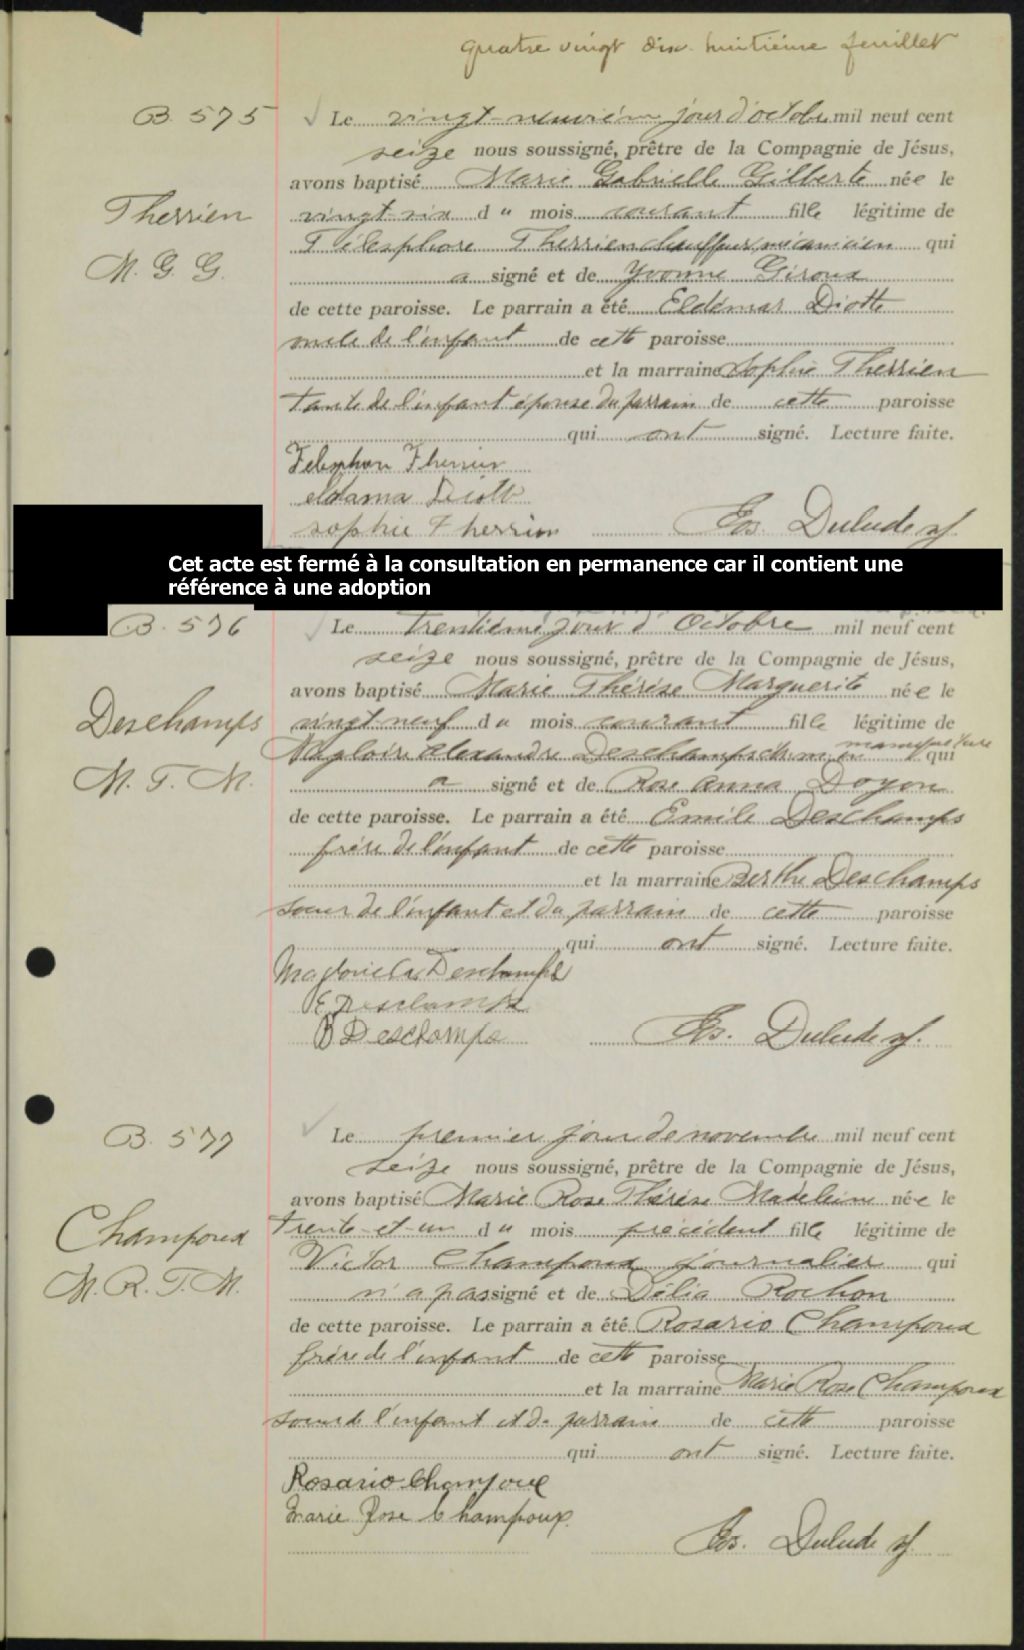 quatre vingt dix-huitième feuillet
B. 575
Le vingt-neuvièm jour d'octobre mil neuf cent
seize nous soussigné, prêtre de la Compagnie de Jésus,
avons baptisé Marie Gabrielle Gilberte née le
Therrien
vingt-six du mois courant fille légitime de
Télesphore Therrien chauffeur mécanicien qui
M. G. G.
a signé et de Yvonne Giroux
de cette paroisse. Le parrain a été Eldémar Diotte
oncle de l'enfant de cette paroisse
et la marraine Sophie Therrien
tante de l'enfant épouse du parrain de cette paroisse
qui ont signé. Lecture faite.
Telesphore Therrien
eldama Diotte
sophie Therrien Jos. Dulude sj.
Cet acte est fermé à la consultation en permanence car il contient une
référence à une adoption
B. 576
Le trentième jour d'Octobre mil neuf cent
seize nous soussigné, prêtre de la Compagnie de Jésus,
avons baptisé Marie Thérèse Marguerite née le
Deschamps
vingt-neuf du mois courant fille légitime de
Magloire Alexandre Deschamps manufacture qui
M. T. M.
a signé et de Rose Anna Doyon
de cette paroisse. Le parrain a été Emile Deschamps
frère de l'enfant de cette paroisse
et la marraine Berthe Deschamps
soeur de l'enfant et du parrain de cette paroisse
qui ont signé. Lecture faite.
Magloire A Deschamps
E Deschamps
B Deschamps Jos. Dulude sj.
B. 577
Le premier jour de novembre mil neuf cent
seize nous soussigné, prêtre de la Compagnie de Jésus,
avons baptisé Marie Rose Thérèse Madeleine née le
Champoux
trente-et-un du mois précédent fille légitime de
Victor Champoux journalier qui
M. R. T. M.
n'a pas signé et de Délia Rochon
de cette paroisse. Le parrain a été Rosario Champoux
frère de l'enfant de cette paroisse
et la marraine Marie Rose Champoux
soeur de l'enfant et du parrain de cette paroisse
qui ont signé. Lecture faite.
Rosario Champoux
Marie Rose Champoux
Jos. Dulude sj.